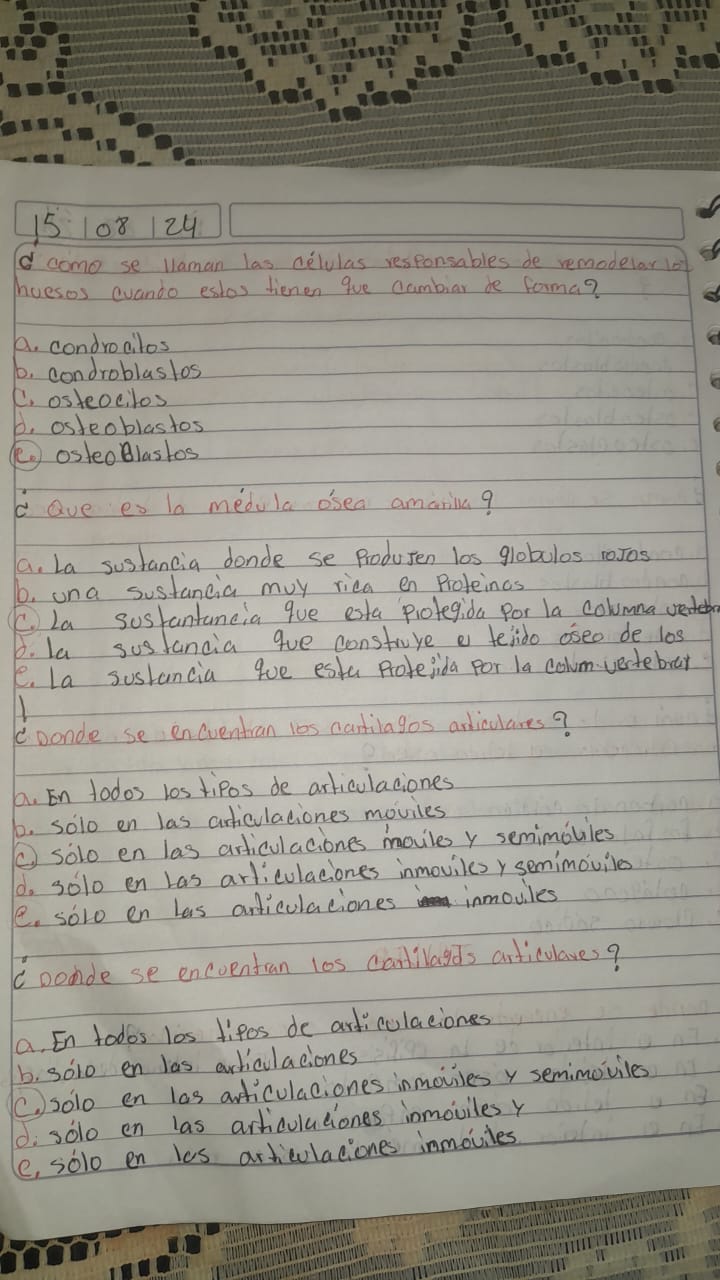 15 | 08 | 24
¿ como se llaman las células responsables de remodelar los
huesos cuando estos tienen que cambiar de forma?
a. condrocitos
b. condroblastos
c. osteocitos
d. osteoblastos
e. osteoBlastos
¿ Que es la médula ósea amarilla?
a. La sustancia donde se Produsen los globulos roJos
b. una sustancia muy rica en Proteinas
c. La sustantancia que esta protegida por la columna vertebra
d. la sustancia que construye el tejido óseo de los
e. La sustancia que esta Protejida por la colum. vertebrar
¿ Donde se encuentran los cartilagos articulares?
a. En todos los tipos de articulaciones
b. sólo en las articulaciones móviles
c. sólo en las articulaciónes móviles y semimóviles
d. sólo en las articulaciones inmoviles y semimóviles
e. sólo en las articulaciones inmoviles
¿ Donde se encuentran los cartilagos articulares?
a. En todos los tipos de articulaciones
b. sólo en las articulaciones
c. sólo en las articulaciones inmóviles y semimóviles
d. sólo en las articulaciones inmóviles y
e. sólo en las articulaciones inmóviles